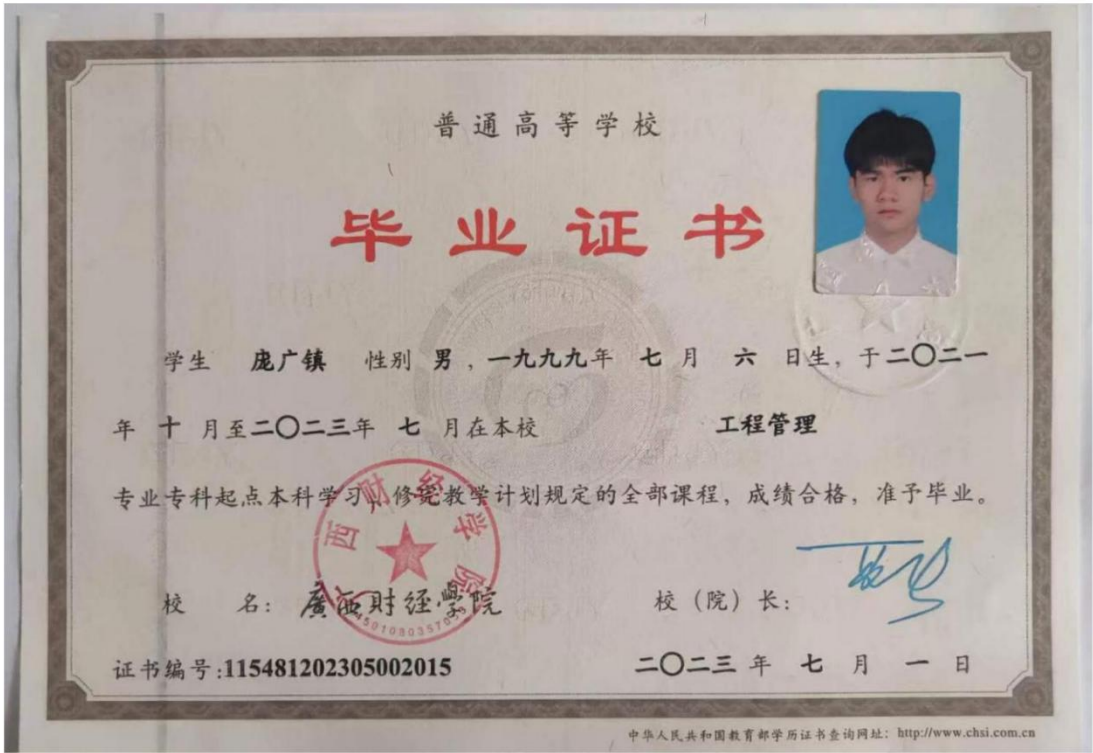 普通高等学校
毕业证书
学生 庞广镇 性别 男，一九九九年 七 月 六 日生，于二〇二一
年 十 月至二〇二三年 七 月在本校 工程管理
专业专科起点本科学习，修完教学计划规定的全部课程，成绩合格，准予毕业。
校 名：廣西财经學院
校（院）长：
证书编号:115481202305002015
二〇二三 年 七 月 一 日
中华人民共和国教育部学历证书查询网址：http://www.chsi.com.cn
西财经学院